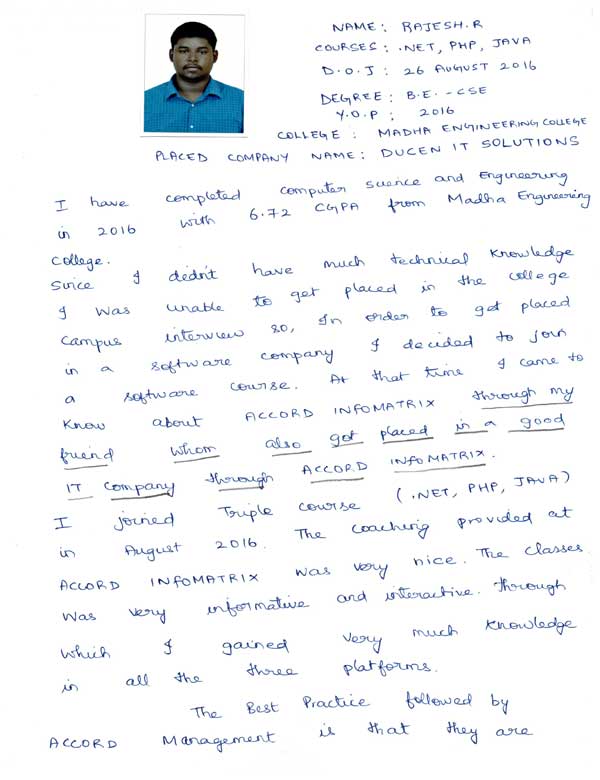 NAME : RAJESH.R
COURSES : .NET, PHP, JAVA
D.O.J : 26 AUGUST 2016
DEGREE : B.E. - CSE
Y.O.P : 2016
COLLEGE : MADHA ENGINEERING COLLEGE
PLACED COMPANY NAME : DUCEN IT SOLUTIONS
I have completed computer science and Engineering
in 2016 with 6.72 CGPA from Madha Engineering
College.
Since I didn't have much technical knowledge
I was unable to get placed in the college
campus interview so, In order to get placed
in a software company I decided to join
a software course. At that time I came to
know about ACCORD INFOMATRIX through my
friend whom also got placed in a good
IT company through ACCORD INFOMATRIX.
I joined Triple course (.NET, PHP, JAVA)
in August 2016. The coaching provided at
ACCORD INFOMATRIX was very nice. The classes
was very informative and interactive. Through
which I gained very much knowledge
in all the three platforms.
The Best Practice followed by
ACCORD Management is that they are